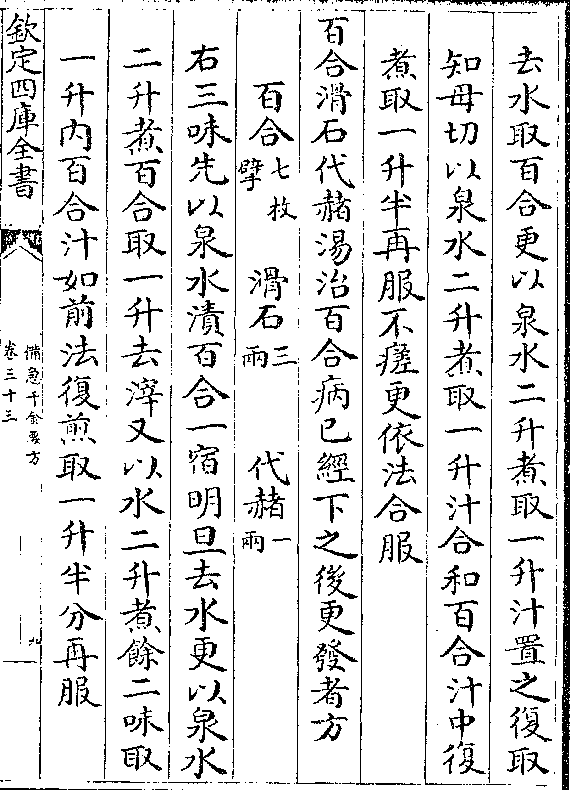 去水取百合更以泉水二升煮取一升汁置之復取
知母切以泉水二升煮取一升汁合和百合汁中復
煮取一升半再服不瘥更依法合服
百合滑石代赭湯治百合病已經下之後更發者方
百合七枚擘　滑石三兩　代赭一兩
右三味先以泉水漬百合一宿明旦去水更以泉水
二升煮百合取一升去滓又以水二升煮餘二味取
一升内百合汁如前法復煎取一升半分再服
欽定四庫全書
備急千金要方
卷三十三
九